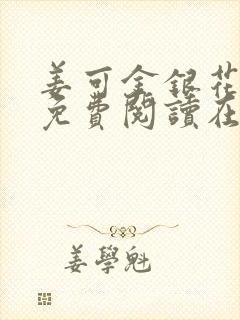 姜可金銀花
免費閱讀在
姜學魁